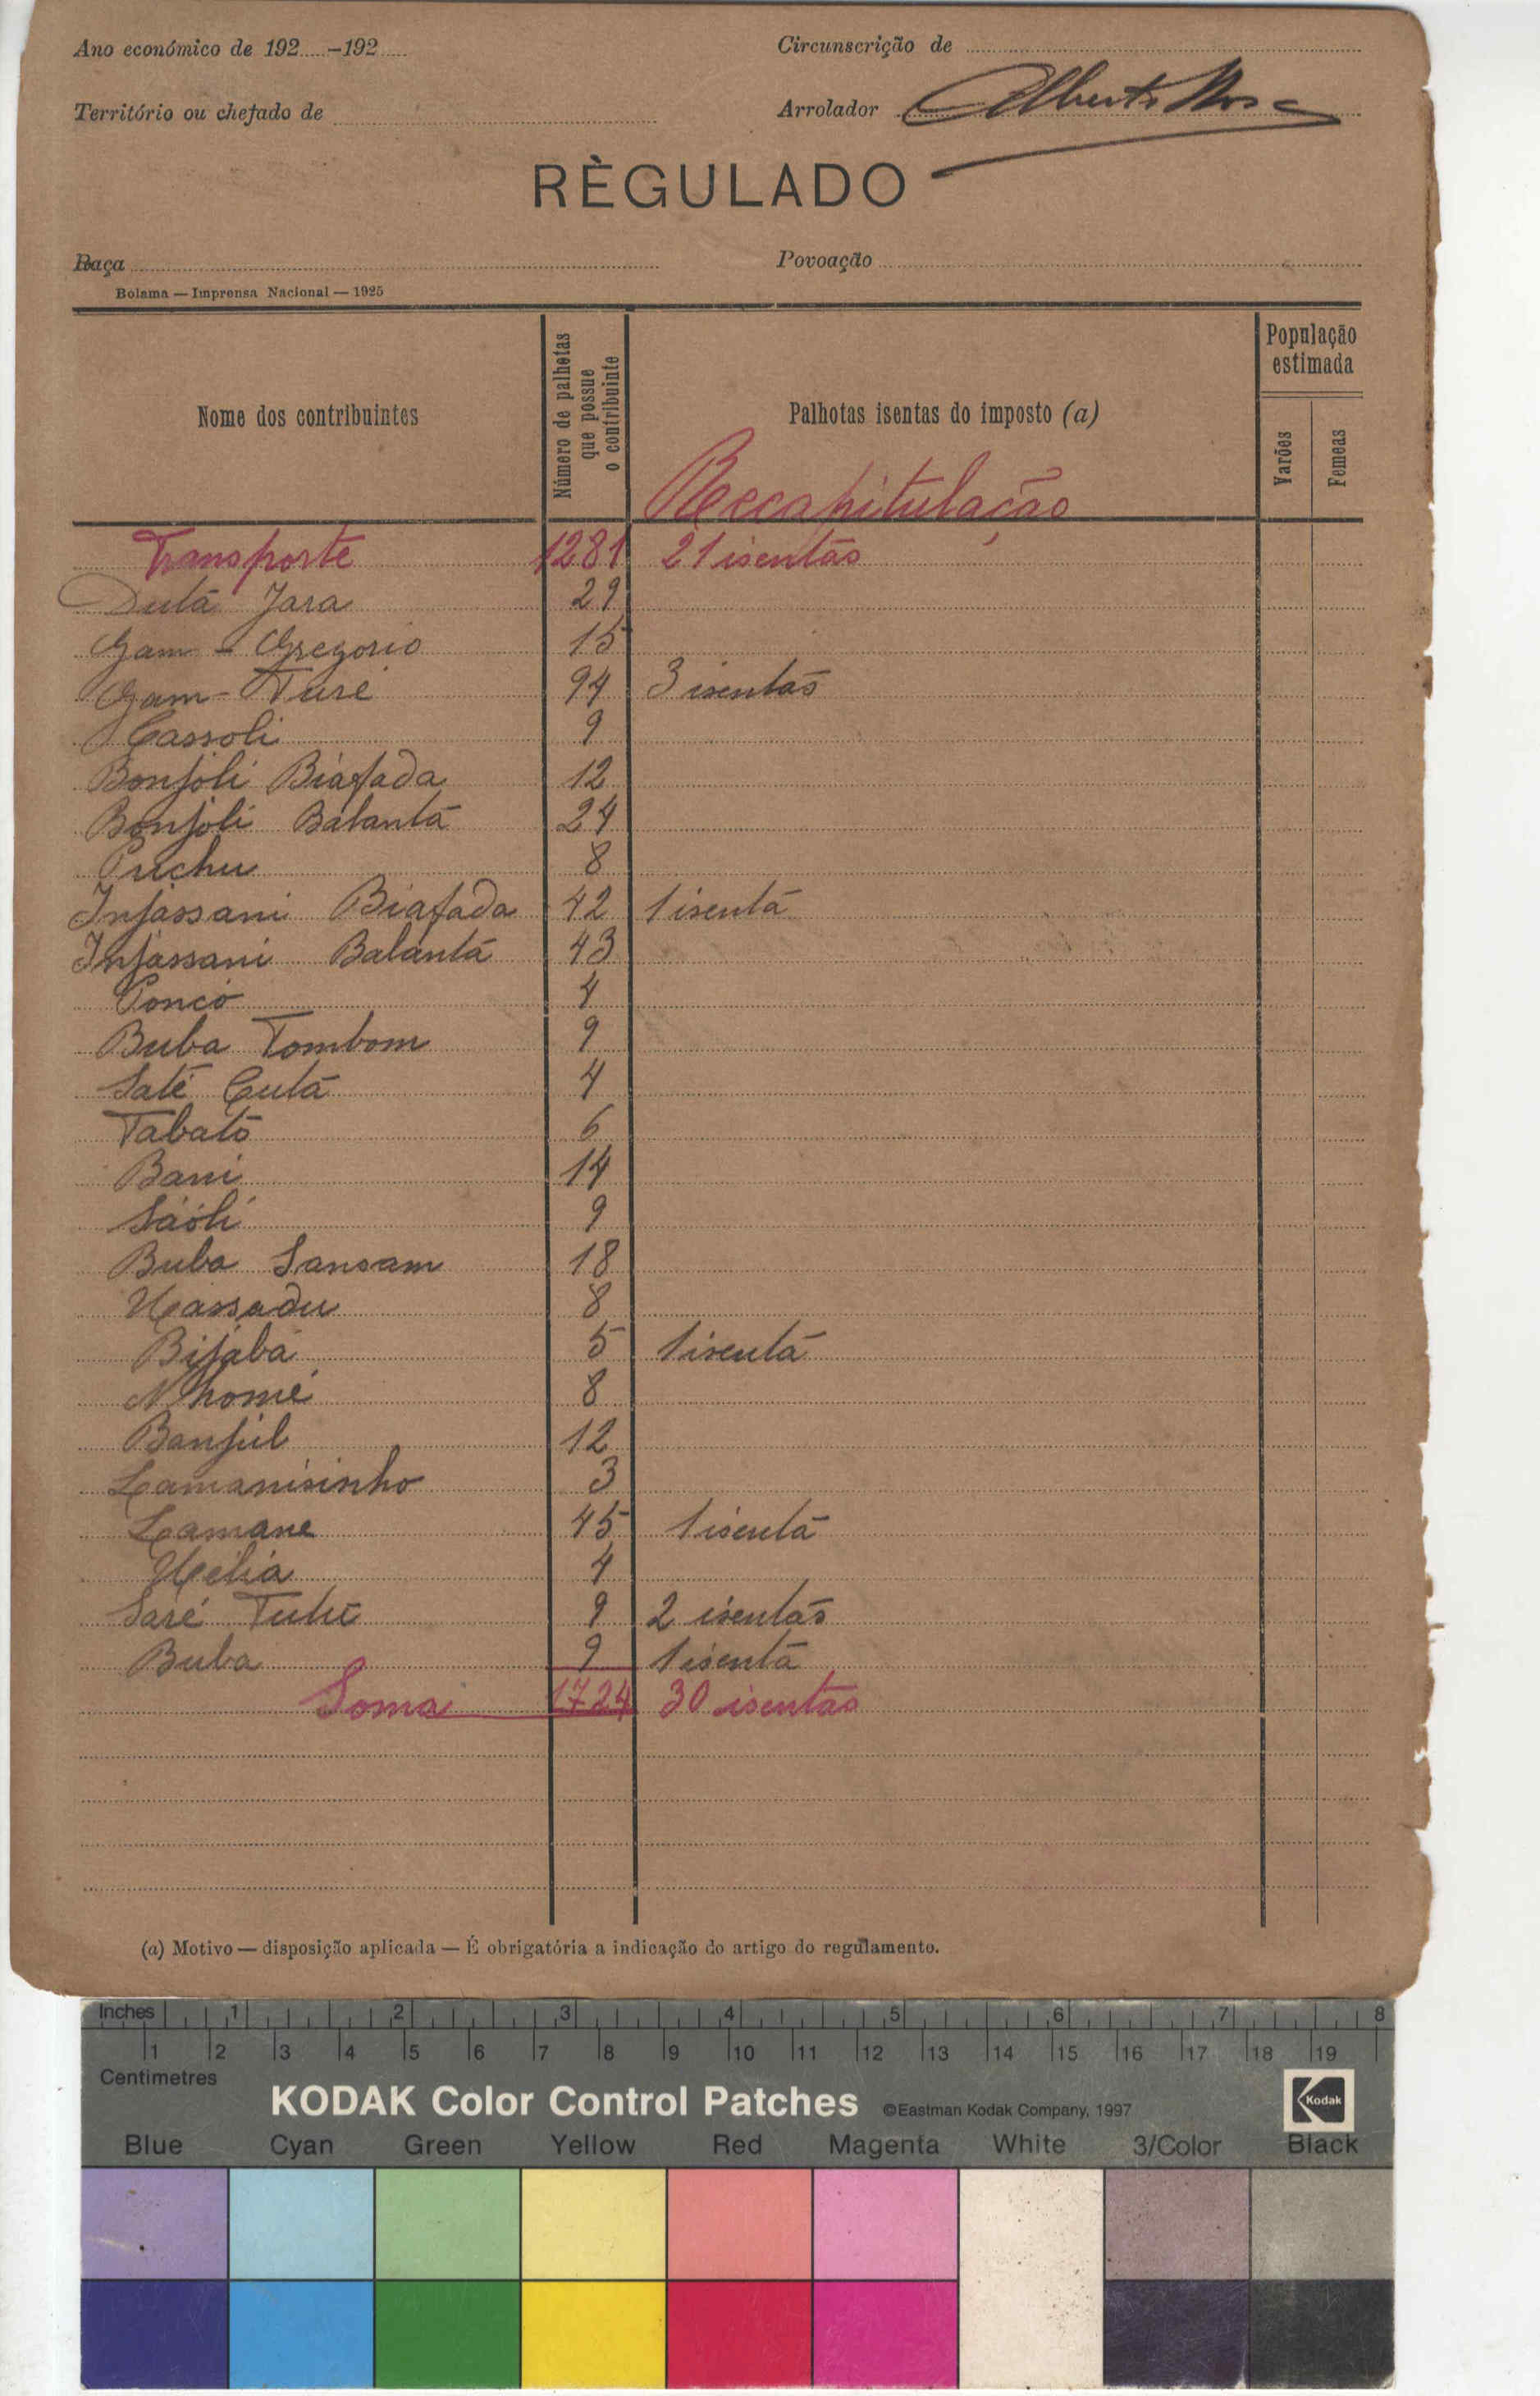 Ano económico de 192.....-192.....
Circunscrição de
Território ou chefado de
Arrolador Alberto
RÈGULADO
Raça
Povoação
Bolama — Imprensa Nacional — 1925
Nome dos contribuintes
Número de palhotas que possue o contribuinte
Palhotas isentas do imposto (a)
População estimada
Varões
Femeas
Recapitulação
Transporte 1281 21 isentas
Dutá Jara 29
Gam - Gregorio 15
Gam - Turé 94 3 isentas
Cassoli 9
Bonjóli Biafada 12
Bonjoli Balanta 24
8
Injassani Biafada 42 1 isenta
Injassani Balanta 43
4
Buba Tombom 9
Saté Cutá 4
Tabatò 6
Bani 14
Sáóli 9
Buba Sansam 18
8
Bijabá 5 1 isenta
Nhomé 8
Banjul 12
Lamanisinho 3
Lamane 45 1 isenta
4
Saré 9 2 isentas
Buba 9 1 isenta
Soma 1724 30 isentas
(a) Motivo — disposição aplicada — É obrigatória a indicação do artigo do regulamento.
Inches 1 2 3 4 5 6 7 8
1 2 3 4 5 6 7 8 9 10 11 12 13 14 15 16 17 18 19
Centimetres
KODAK Color Control Patches ©Eastman Kodak Company, 1997 Kodak
Blue Cyan Green Yellow Red Magenta White 3/Color Black